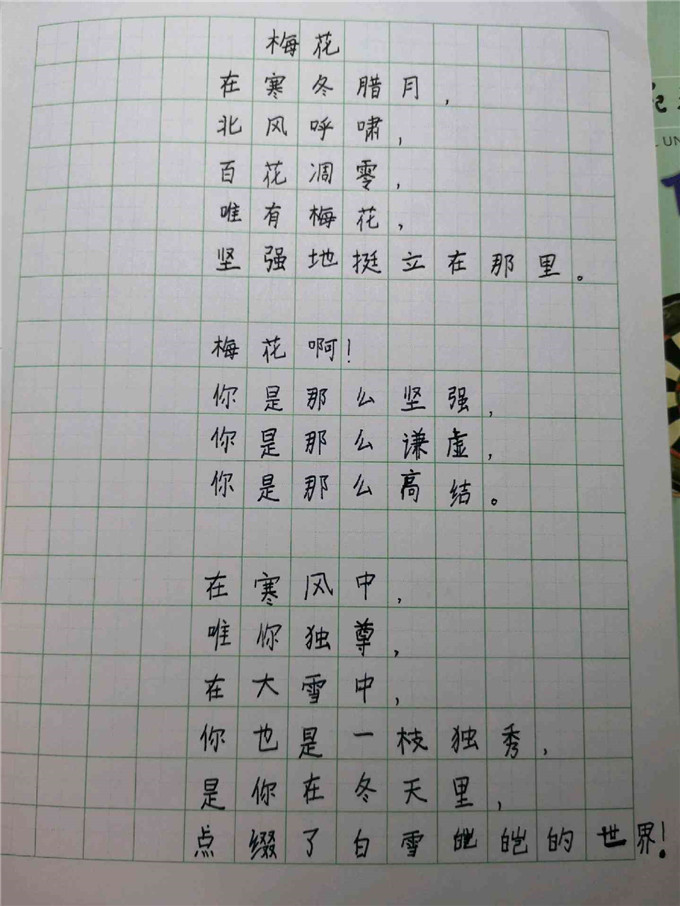 梅花
在寒冬腊月，
北风呼啸，
百花凋零，
唯有梅花，
坚强地挺立在那里。
梅花啊！
你是那么坚强，
你是那么谦虚，
你是那么高结。
在寒风中，
唯你独尊，
在大雪中，
你也是一枝独秀，
是你在冬天里，
点缀了白雪皑皑的世界！